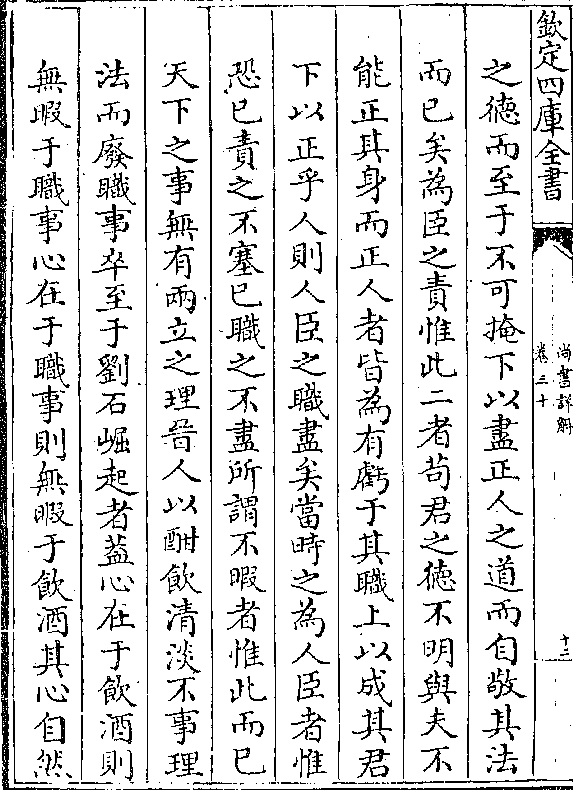 欽定四庫全書
尚書詳解
卷三十
十三
之德而至于不可掩下以盡正人之道而自敬其法
而已矣為臣之責惟此二者苟君之德不明與夫不
能正其身而正人者皆為有虧于其職上以成其君
下以正乎人則人臣之職盡矣當時之為人臣者惟
恐已責之不塞已職之不盡所謂不暇者惟此而已
天下之事無有兩立之理晉人以酣飲清淡不事理
法而廢職事卒至于劉石崛起者葢心在于飲酒則
無暇于職事心在于職事則無暇于飲酒其心自然